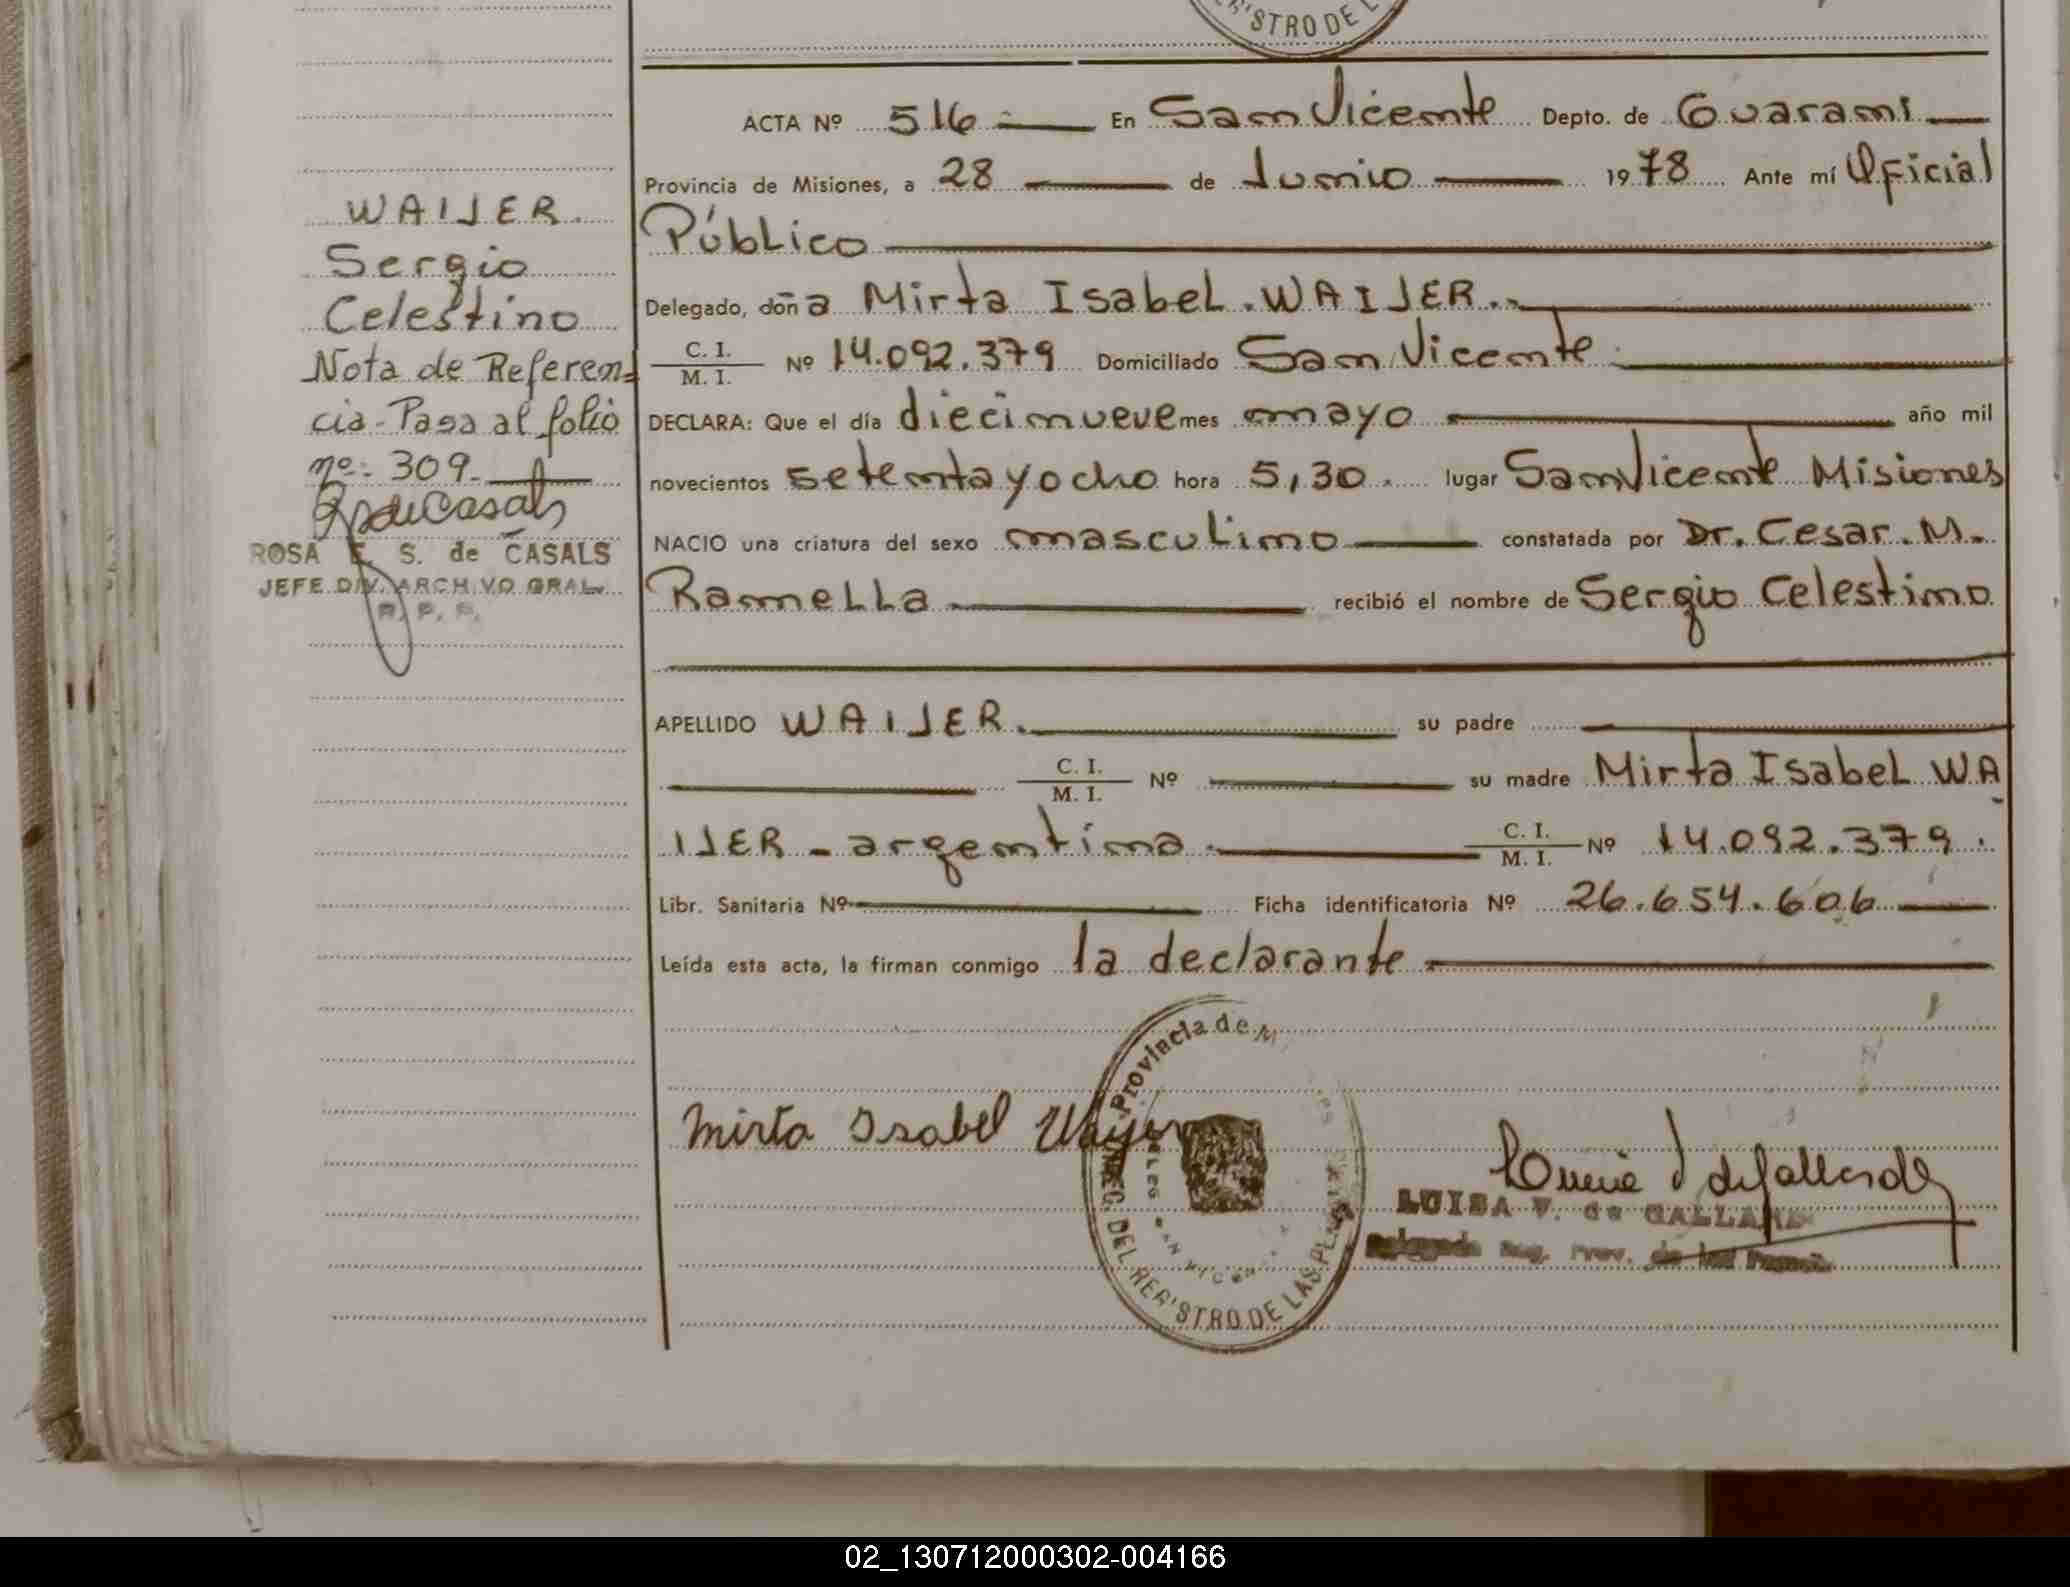 'STRO DE L
ACTA Nº 516 En San Vicente Depto. de Guarani
Provincia de Misiones, a 28 de Junio 1978 Ante mí Oficial
Público
Delegado, doña Mirta Isabel. WAIJER.
C. I.
M. I. Nº 14.092.379 Domiciliado San Vicente
DECLARA: Que el día diecinueve mes mayo año mil
novecientos setenta y ocho hora 5,30. lugar San Vicente Misiones
NACIO una criatura del sexo masculino constatada por Dr. Cesar. M.
Ramella recibió el nombre de Sergio Celestino
APELLIDO WAIJER. su padre
C. I.
M. I. Nº su madre Mirta Isabel WA
IJER - argentina C. I.
M. I. Nº 14.092.379.
Libr. Sanitaria Nº Ficha identificatoria Nº 26.654.606
Leída esta acta, la firman conmigo la declarante
WAIJER.
Sergio
Celestino
Nota de Referen=
cia - Pasa al folio
nº: 309.
ROSA E. S. de CASALS
JEFE DIV. ARCHIVO GRAL.
R. P. P.
Provincia de M
DEL REG'STRO DE LAS PE
Mirta Isabel Wayer
LUISA V. de GALLARD
Delegada Reg. Prov. de las Person.
02_130712000302-004166